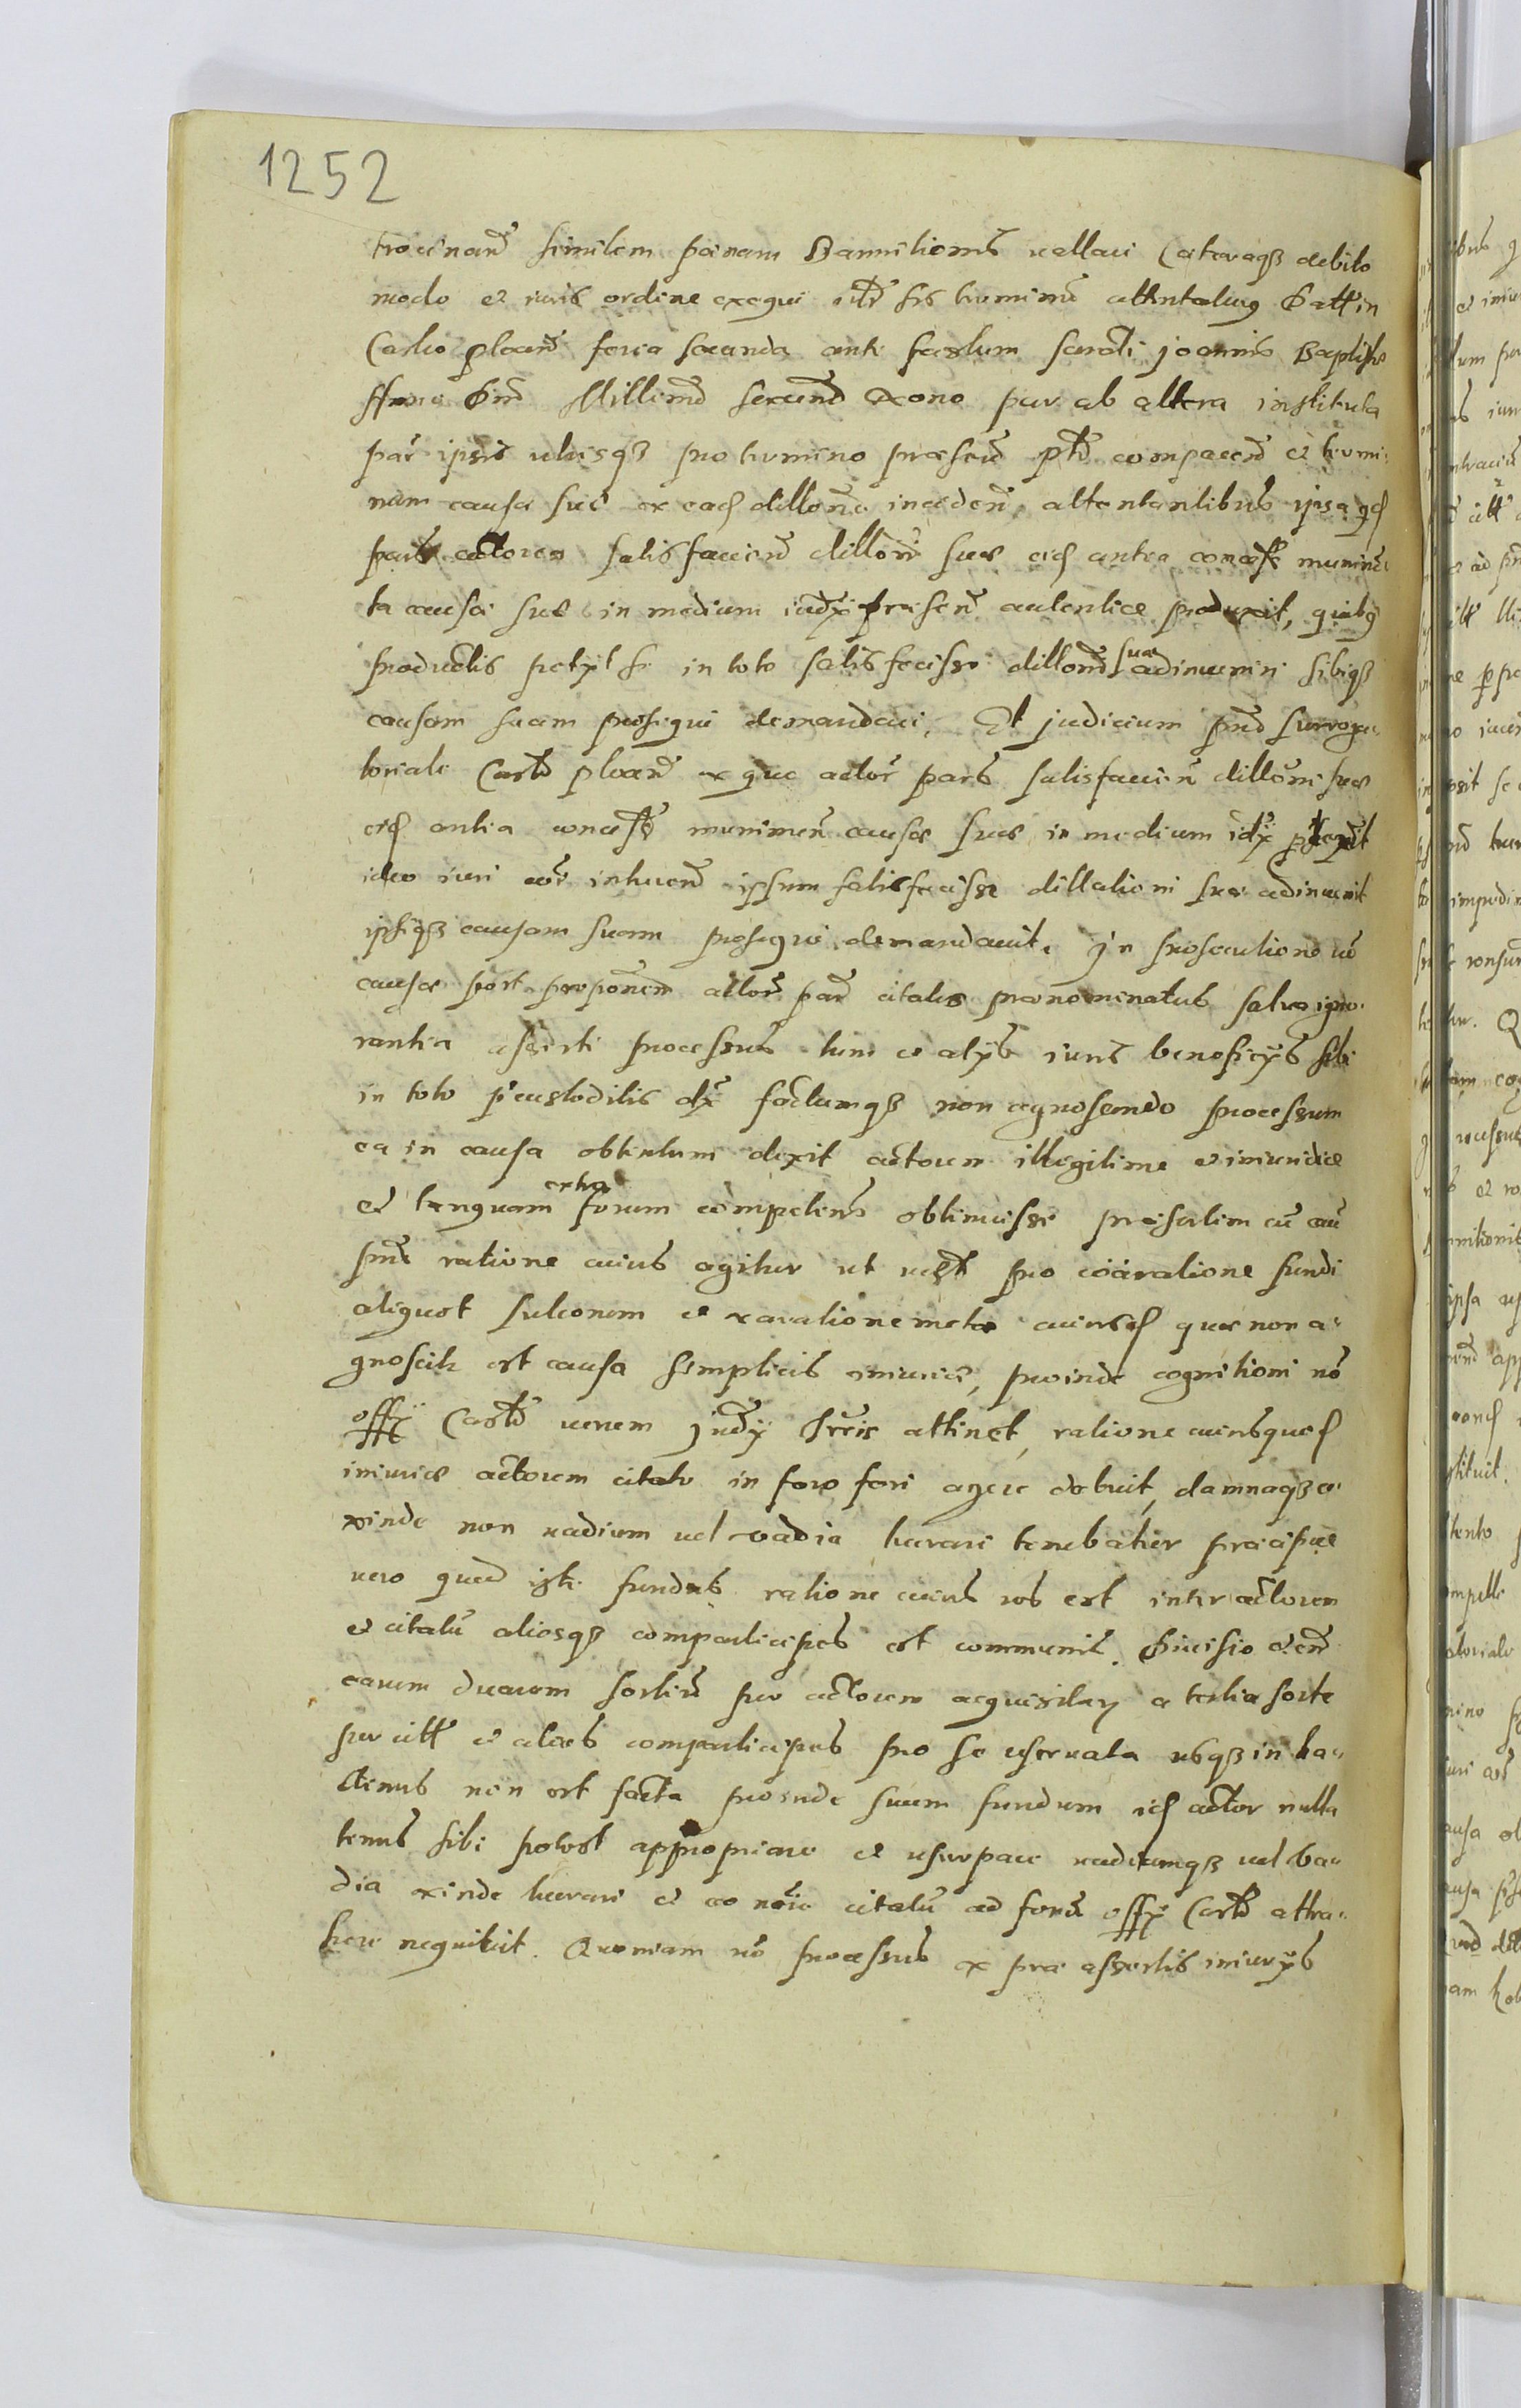 1252
trocinand similem pænam Bannitionis vallavi Cæteraqз debito
modo et iuris ordine exequi citũ sis terminũ attentaturus Datt in
Castro plocen̄ feria secunda ante festum sancti joannis Baptistæ
Anno Dni Millimo sexcent Nono par ab altera instituta
par ipsis utrisqз pro termino præsenti compacen̄ et termi-
num causæ suæ ex eadē dillone inciden̄ attentantibus ipsa qd
pars actorea satisfacien̄ dilloni suæ eid antea concessæ munimē
ta causæ suæ in medium iudy præsen autentice produxit, quibus
productis petyt se in toto satis fecisse dilloni suæ adinueniri sibiqз
causam suam prosequi demandari, Et judicium pnś surroga-
toriale Castr̃ plocen̄ ex quo actor pars satisfacien̄ dilloni suæ
eid antea concessæ munimen causæ suæ in medium idy produxit
ideo iuri coī inhæren̄ ipsum satisfecisse dillationi suæ adinuenit
ipsiqз causam suam prosequi demandauit. In prosecutione uo
causæ post proponem actor par citatus prænominatus salva igno-
rantia asserti processus tum et alys iuris beneficys sibi
in toto pcustoditis dx factumqз non agnoscendo processum
ea in causa obtentum dixit actorem illegitime et iniuridice
et tanquam extra forum competens obtinuisse præsertim cũ cau
pns ratione cuius agitur ut pro coaratione fundi
aliquot sulconum et exaratione metæ cuiusd quæ non a-
gnoscitur est causa simplicis iniuriæ, proinde cognitioni nō
offy Castr̃ uerum Judy Trris attinet, ratione cuiusquid
iniuriæ actorem citatus in foro fori agere debuit, damnaqз e-
xinde non uadium uel vadia lucrari tenebatur præcipue
uero quod iste fundus ratione cuius res est inter actorem
et citatũ aliosqз comparticipes est communis. Diuisio etēn
earum duarum sortiũ per actorem acquisitarum a tertia sorte
per citt et alios comparticipes pro se reseruata usqз in ha-
ctenus non est facta proinde suum fundum id actor nulla
tenus sibi potest appropriare et usurpare uadiumqз uel va-
dia exinde lucrari et eo nōie citatũ ad forũ offy Castr̃ attra-
here nequibit. Quoniam uō processus ex præ assertis iniurys